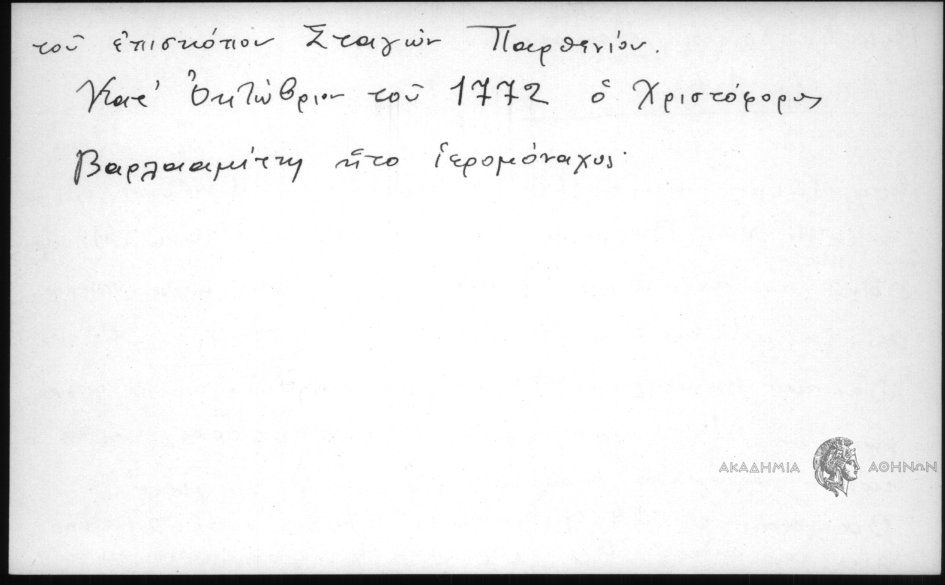 τοῦ ἐπισκόπου Σταγῶν Παρθενίου.
Κατ' Ὀκτώβριον τοῦ 1772 ὁ Χριστόφορος
Βαρλααμίτης ἦτο ἱερομόναχος.
ΑΚΑΔΗΜΙΑ ΑΘΗΝΩΝ